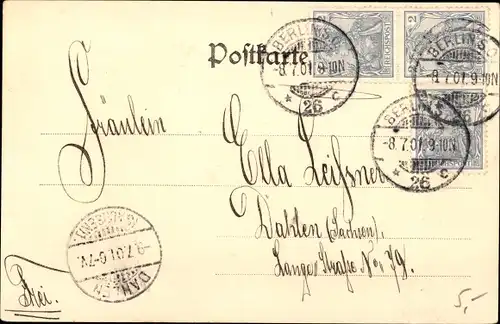 Postkarte
BERLIN S.
-8.7.01.9-10N
* 26 c
BERLIN S.
-8.7.01.9-10N
26
BERLIN S.
-8.7.01.9-10N
* 26 c
REICHSPOST
2
2
Fräulein
Ella Leißner
Dahlen (Sachsen).
Lange Straße No 79.
DAHLEN
-9.7.01.6-7V.
Frei.
5,-